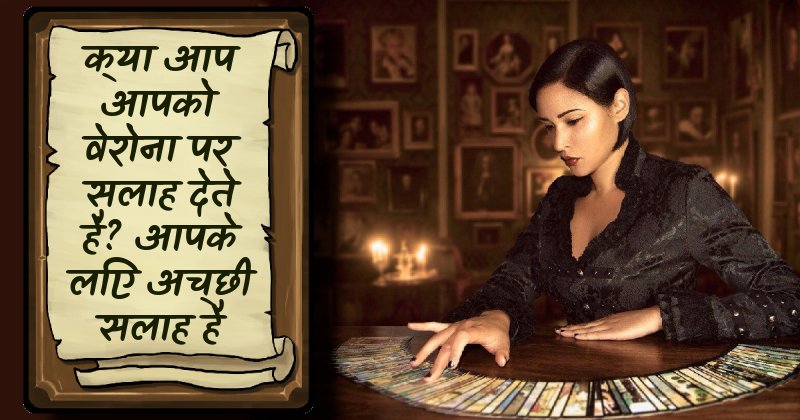 क्या आप
आपको
वेरोना पर
सलाह देते
है? आपके
लिए अच्छी
सलाह है